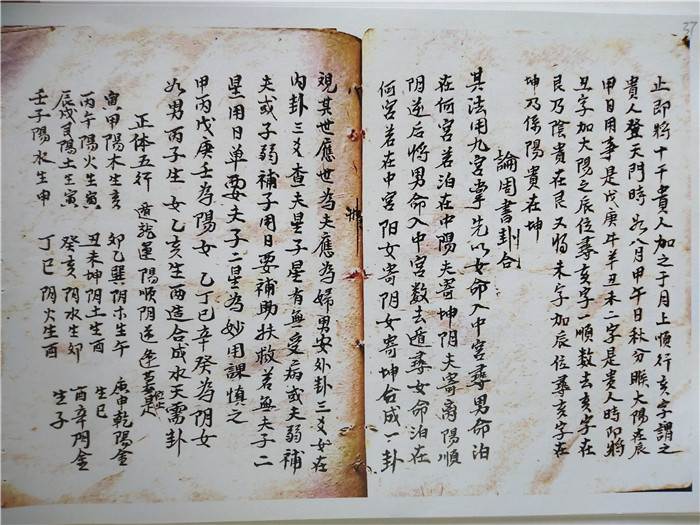 37
止即將十千貴人加之于月上順行亥字謂之
貴人登天門時如八月甲午日秋分賬太陽在辰
甲日用事是戊庚牛羊丑未二字是貴人時即將
丑字加太陽之辰位尋亥字一順數去亥字在
艮乃陰貴在艮又將未字加辰位尋亥字在
坤乃係陽貴在坤
論周書卦合
其法用九宮掌先以女命入中宮尋男命泊
在何宮若泊在中陽夫寄坤阴夫寄离陽順
阴逆后將男命入中宮数去遁尋女命泊在
何宮若在中宮阳女寄阴女寄坤合成一卦
視其世應世為夫應為婦男安外卦三爻女在
內卦三爻查夫星子星有無受病或夫弱補
夫或子弱補子用日要補助扶救若無夫子二
星用日单要夫子二星為妙用課慎之
甲丙戊庚壬為陽女乙丁巳辛癸為阴女
如男丙子生女乙亥生两造合成水天需卦
正体五行遁龍運陽順阴逆
寅甲陽木生亥卯乙巽阴木生午庚申乾陽金生巳
丙午陽火生寅丑未坤阴土生酉酉辛阴金生子
辰戌艮陽土生寅癸亥阴水生卯
壬子陽水生申丁巳阴火生酉